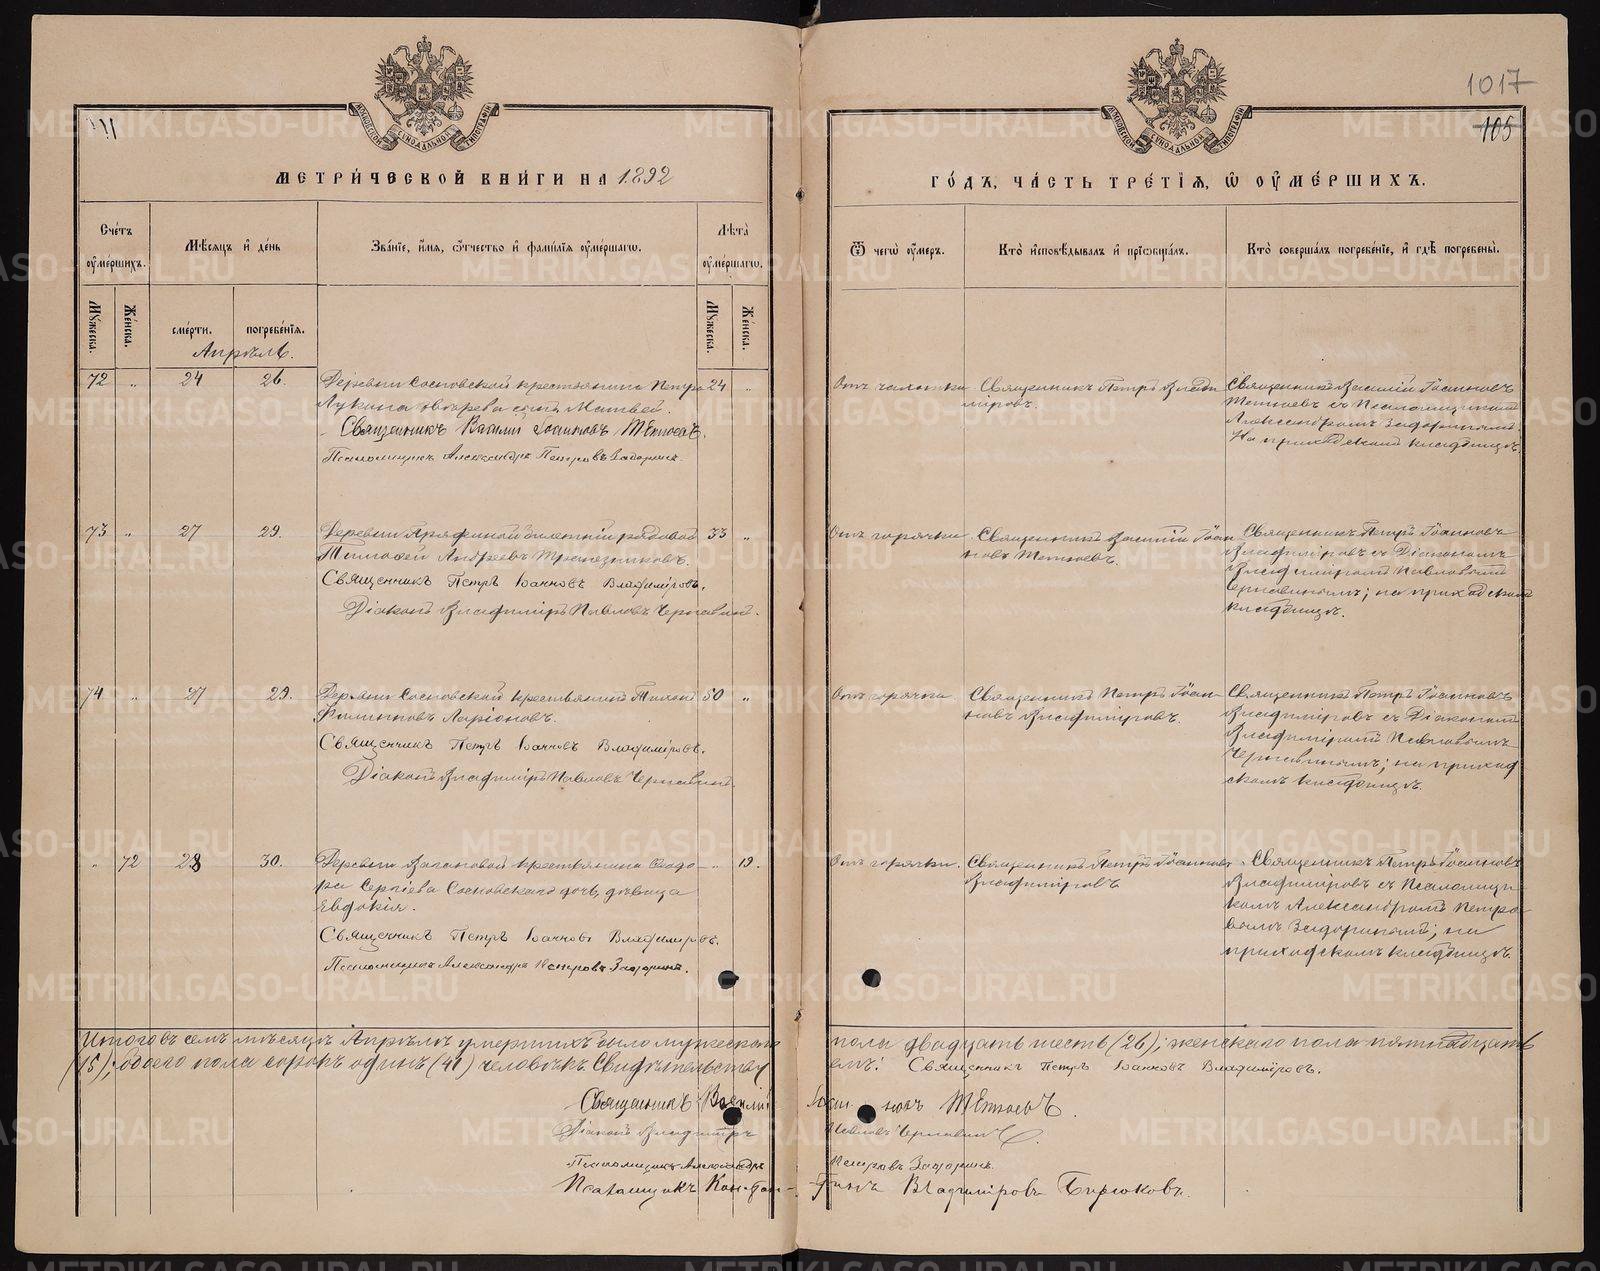 1017
105
МОСКОВСКОЙ СѴНОДАЛЬНОЙ ТИПОГРАФІИ
МОСКОВСКОЙ СѴНОДАЛЬНОЙ ТИПОГРАФІИ
МЕТРИ́ЧЕСКОЙ КНИ́ГИ НА 1892
ГО́ДЪ, ЧА́СТЬ ТРЕ́ТІѦ, Ѡ ОУМЕ́РШИХЪ.
Сче́тъ оумершихъ.
Мѣсѧцъ и де́нь
Зва́нїе, и́мѧ, ѻ́тчество и фами́лїѧ оуме́ршагѡ.
Лѣта̀ оуме́ршагѡ.
Ѿ чегѡ̀ оу́меръ.
Кто̀ и҆сповѣ́дывалъ и прїѡбща́лъ.
Кто̀ соверша́лъ погребе́нїе, и гдѣ̀ погребены̀.
Мꙋжеска.
Же́нска.
сме́рти.
погребе́нїѧ.
Мꙋжеска.
Же́нска.
Апрѣль.
72 „ 24 26. Деревни Сосновской крестьянина Петра 24 „
Лукина сынъ Матвей.
Священникъ Василій Іоанновъ Тетюевъ.
Псаломщикъ Александръ Петровъ Задоринъ.
Отъ чахотки
Священникъ Петръ Влади
міровъ.
Священникъ Василій Іоанновъ
Тетюевъ съ Псаломщикомъ
Александромъ Задоринымъ.
На приходскомъ кладбищѣ.
73 „ 27 29. Деревни рядовой 33 „
Тимофей Андреевъ Трапезниковъ.
Священникъ Петръ Іоанновъ Владиміровъ.
Діаконъ Владиміръ Павловъ Чернавинъ.
Отъ горячки
Священникъ Василій Іоан
новъ Тетюевъ.
Священникъ Петръ Іоанновъ
Владиміровъ съ Діакономъ
Владиміромъ Павловымъ
Чернавинымъ; на приходскомъ
кладбищѣ.
74 „ 27 29. Деревни Сосновской крестьянинъ Тихонъ 50 „
Филиповъ Ларіоновъ.
Священникъ Петръ Іоанновъ Владиміровъ.
Діаконъ Владиміръ Павловъ Чернавинъ.
Отъ горячки
Священникъ Петръ Іоан-
новъ Владиміровъ.
Священникъ Петръ Іоанновъ
Владиміровъ съ Діакономъ
Владиміромъ Павловымъ
Чернавинымъ; на приход
скомъ кладбищѣ.
„ 72 28 30. Деревни крестьянина Ѳедо- „ 19.
ра Сергіева Сосновскаго дочь, дѣвица
Евдокія.
Священникъ Петръ Іоанновъ Владиміровъ.
Псаломщикъ Александръ Петровъ Задоринъ.
Отъ горячки.
Священникъ Петръ Іоанновъ
Владиміровъ
Священникъ Петръ Іоанновъ
Владиміровъ съ Псаломщи
комъ Александромъ Петро
вымъ Задоринымъ; на
приходскомъ кладбищѣ.
Итого въ семъ мѣсяцѣ Апрѣлѣ умершихъ было мужескаго пола двадцать шесть (26); женскаго пола пятнадцать
(15); обоего пола сорокъ одинъ (41) человѣкъ. Свидѣтельству
емъ: Священникъ Петръ Іоанновъ Владиміровъ.
Священникъ Василій Іоанновъ Тетюевъ.
Діаконъ Владиміръ Павловъ Чернавинъ.
Псаломщикъ Александръ Петровъ Задоринъ.
Псаломщикъ Константинъ Владиміровъ Бирюковъ.
METRIKI.GASO-URAL.RU